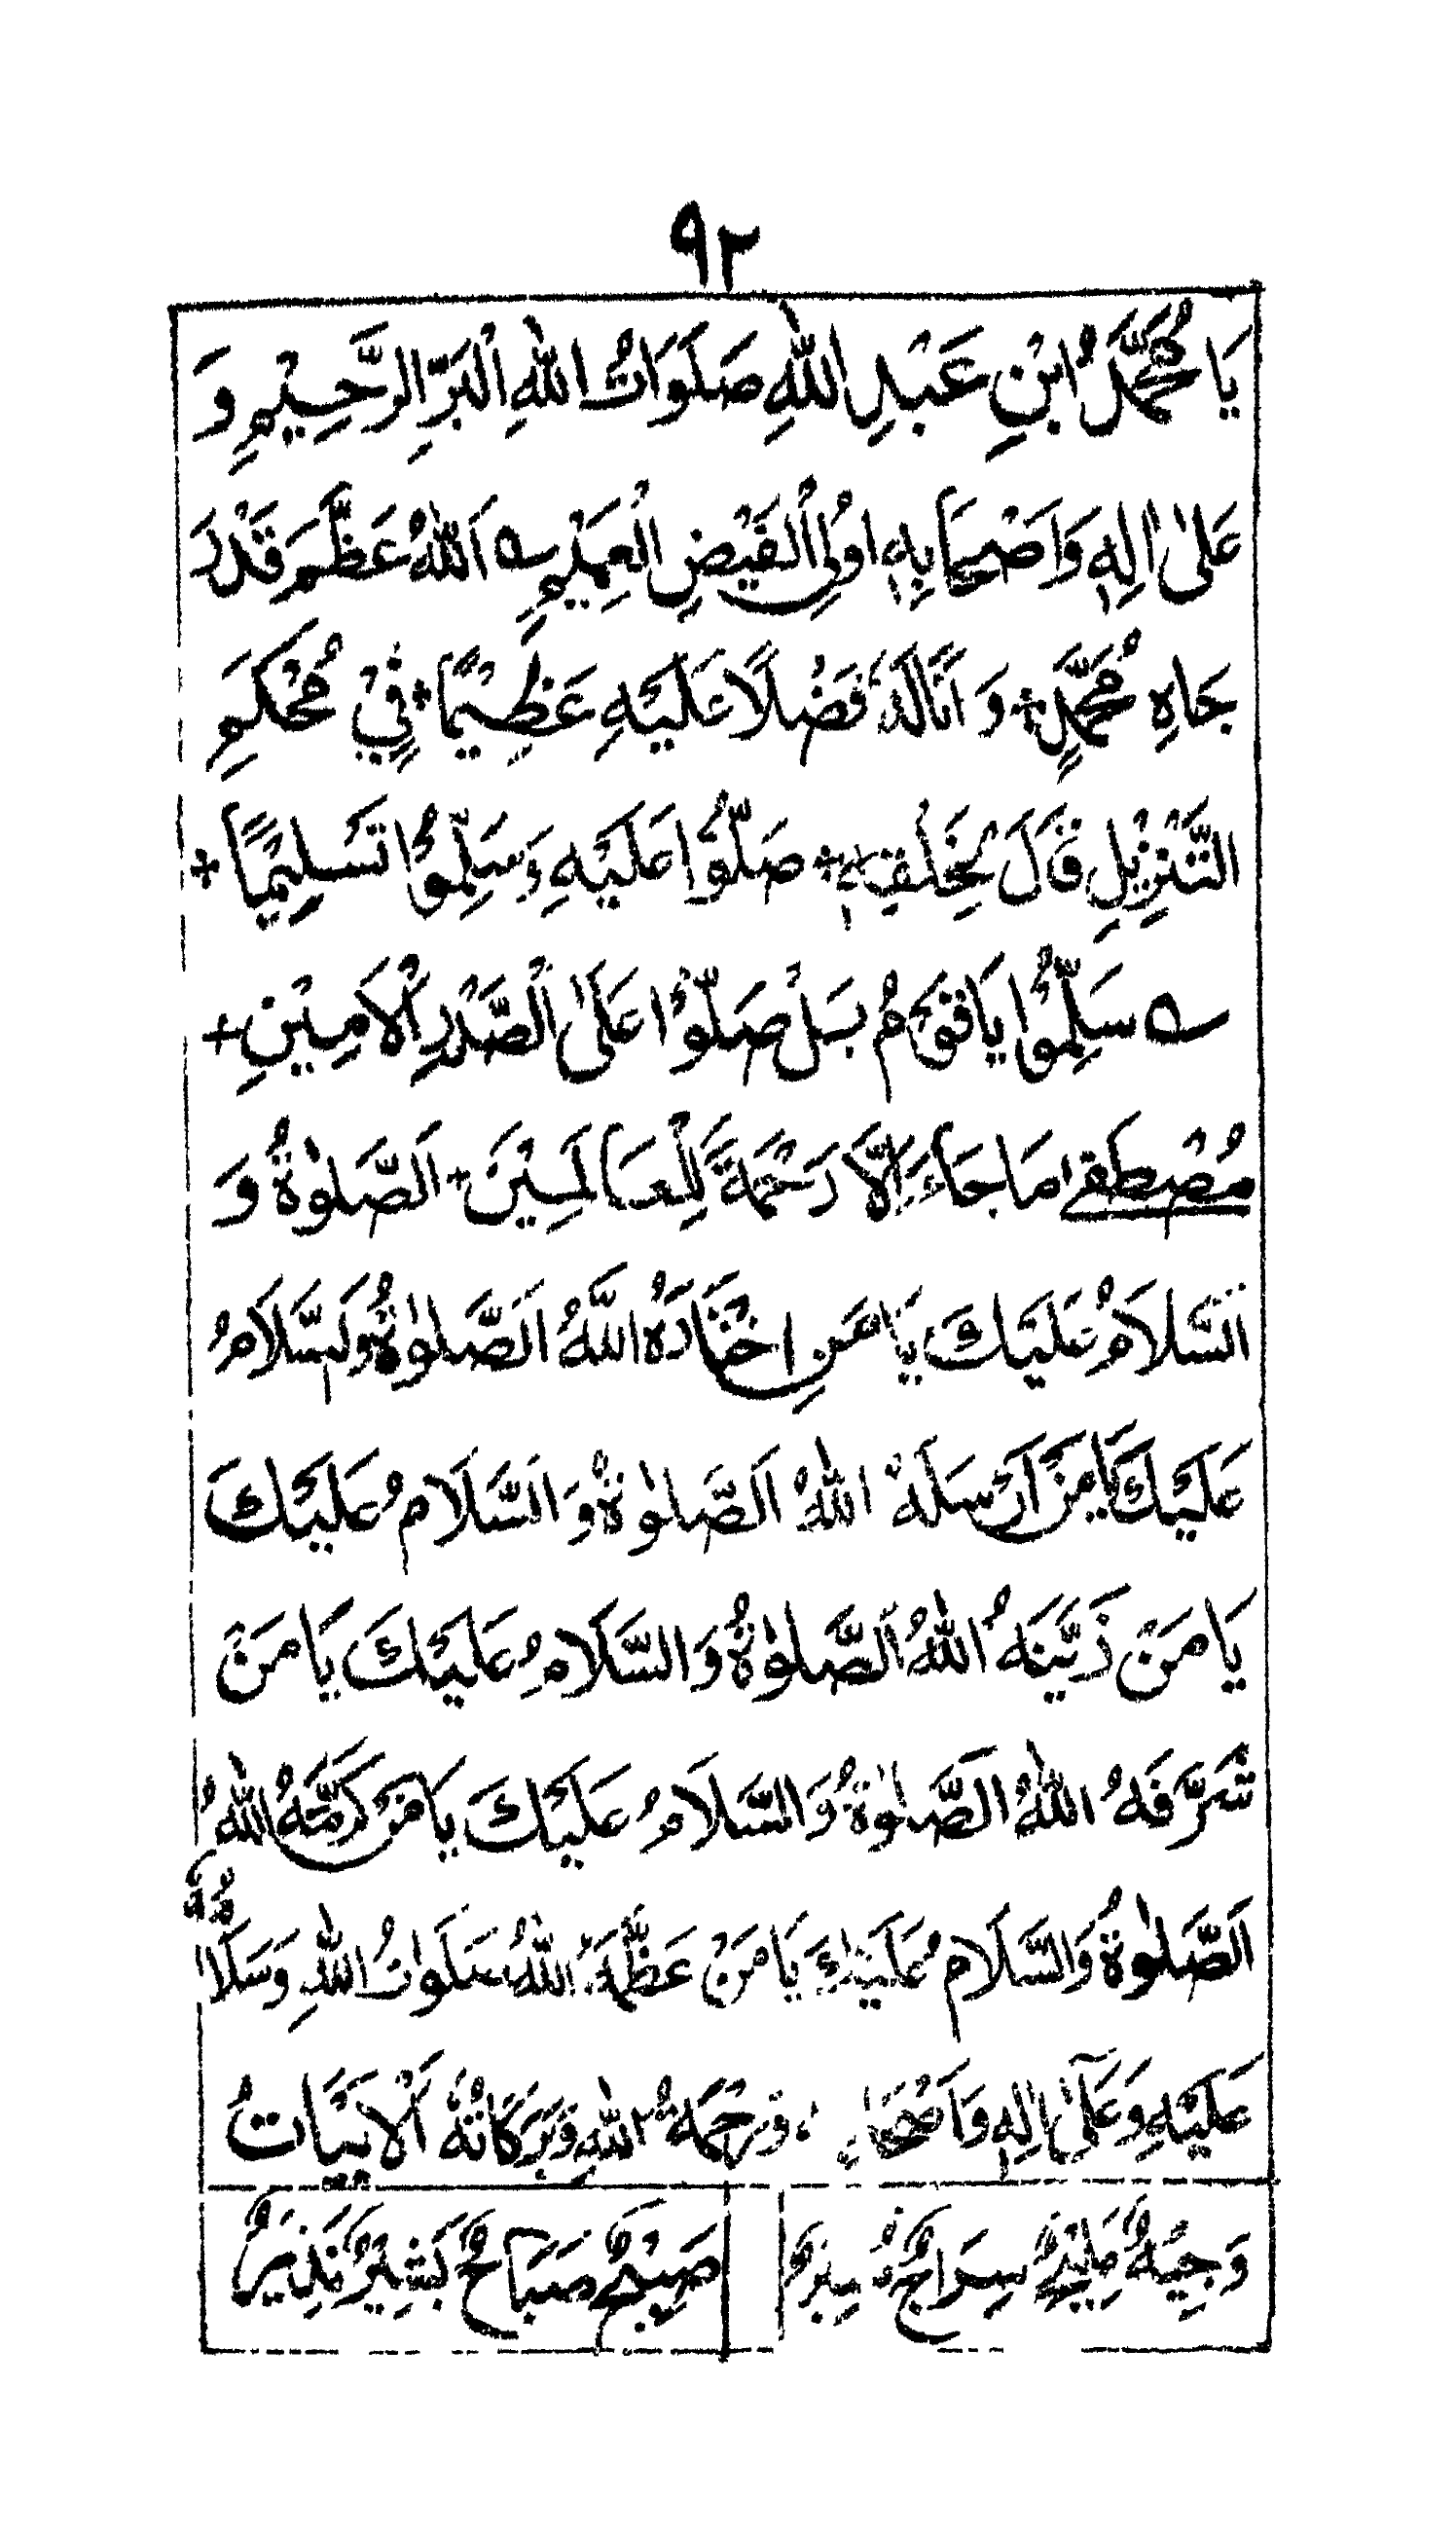 ٩٢
يَا مُحَمَّدُ ابْنِ عَبْدِ اللّٰهِ صَلَوَاتُ اللّٰهِ الْبَرِّ الرَّحِيْمِ وَ
عَلٰى اٰلِهٖ وَاَصْحَابِهٖ اُولِى الْفَيْضِ الْعَمِيْمِ ؎ اَللّٰهُ عَظَّمَ قَدْرَ
جَاهِ مُحَمَّدٍ + وَ اَنَالَهٗ فَضْلًا عَلَيْهِ عَظِيْمًا + فِيْ مُحْكَمِ
التَّنْزِيْلِ قَالَ لِخَلْقِهٖ + صَلُّوْا عَلَيْهِ وَسَلِّمُوْا تَسْلِيْمًا +
؎ سَلِّمُوْا يَا قَوْمُ بَلْ صَلُّوْا عَلَى الصَّدْرِ الْاَمِيْنِ +
مُصْطَفٰى مَا جَاءَ اِلَّا رَحْمَةً لِّلْعَالَمِيْنَ + اَلصَّلٰوةُ وَ
السَّلَامُ عَلَيْكَ يَا مَنِ اخْتَارَهُ اللّٰهُ اَلصَّلٰوةُ وَالسَّلَامُ
عَلَيْكَ يَا مَنْ اَرْسَلَهُ اللّٰهُ اَلصَّلٰوةُ وَالسَّلَامُ عَلَيْكَ
يَا مَنْ زَيَّنَهُ اللّٰهُ اَلصَّلٰوةُ وَالسَّلَامُ عَلَيْكَ يَا مَنْ
شَرَّفَهُ اللّٰهُ الصَّلٰوةُ وَالسَّلَامُ عَلَيْكَ يَا مَنْ كَرَّمَهُ اللّٰهُ
اَلصَّلٰوةُ وَالسَّلَامُ عَلَيْكَ يَا مَنْ عَظَّمَهُ اللّٰهُ صَلَوٰتُ اللّٰهِ وَسَلَامُهٗ
عَلَيْهِ وَعَلٰٓى اٰلِهٖ وَاَصْحَابِهٖ وَرَحْمَةُ اللّٰهِ وَبَرَكَاتُهٗ اَلْاَبْيَاتُ
وَجِيْهٌ مَلِيْحٌ سِرَاجٌ مُنِيْرٌ صَبِيْحٌ صَبَاحٌ بَشِيْرٌ نَذِيْرٌ